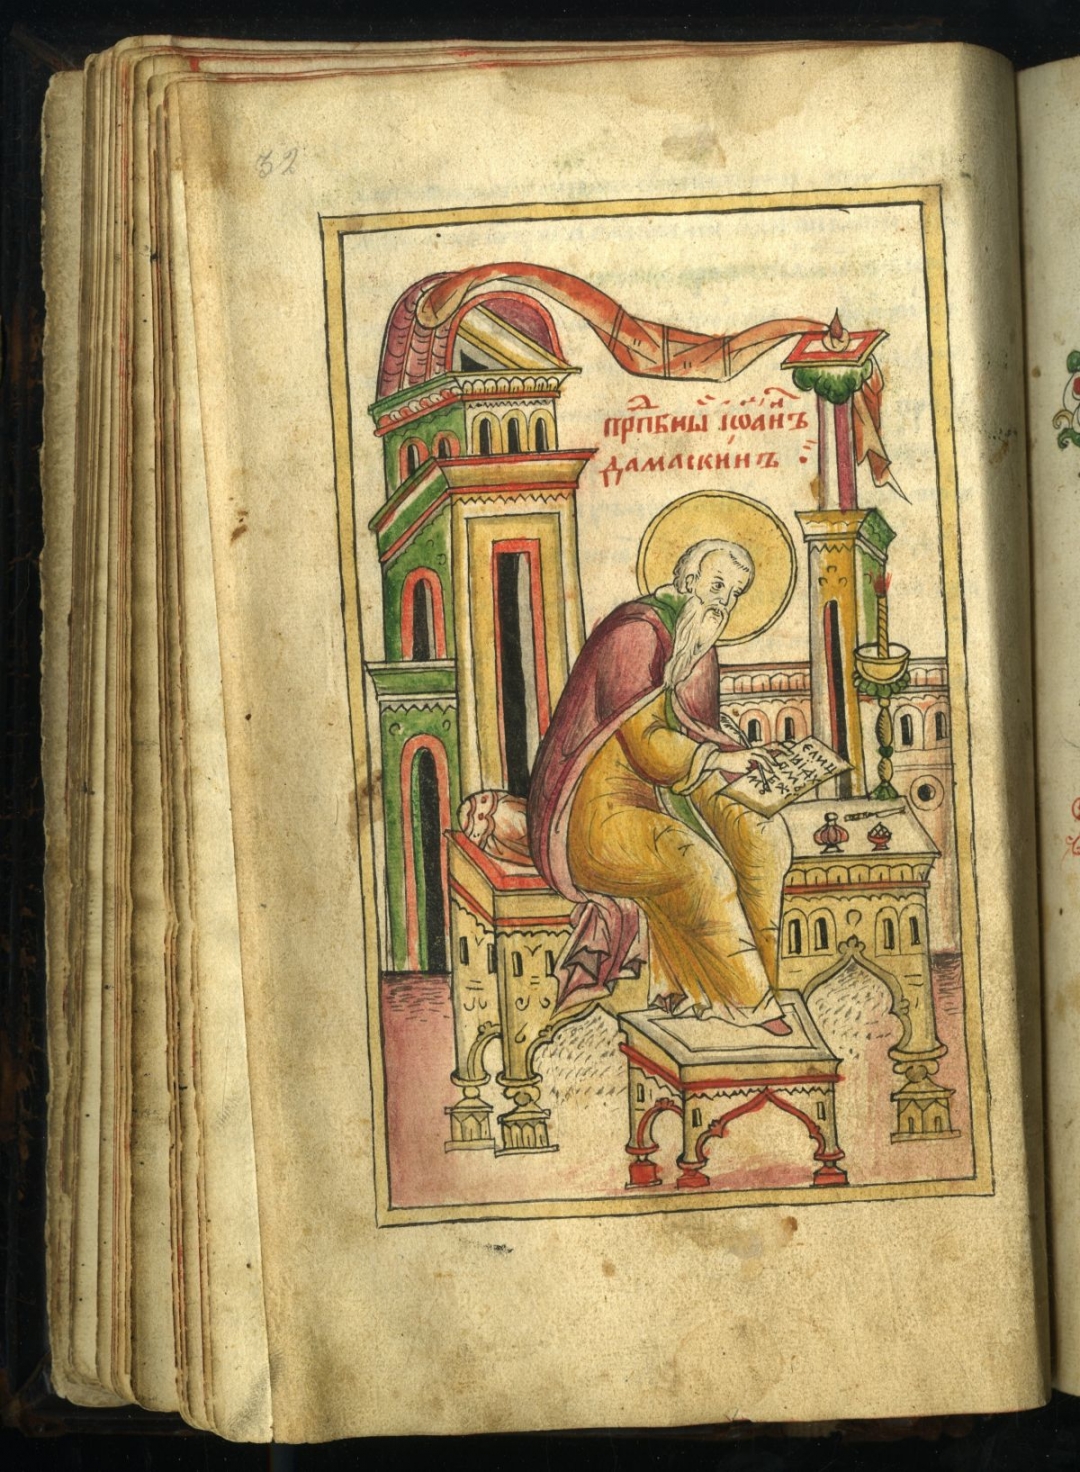 32
прпⷣбны іѡаⷩнъ
дамаскинъ